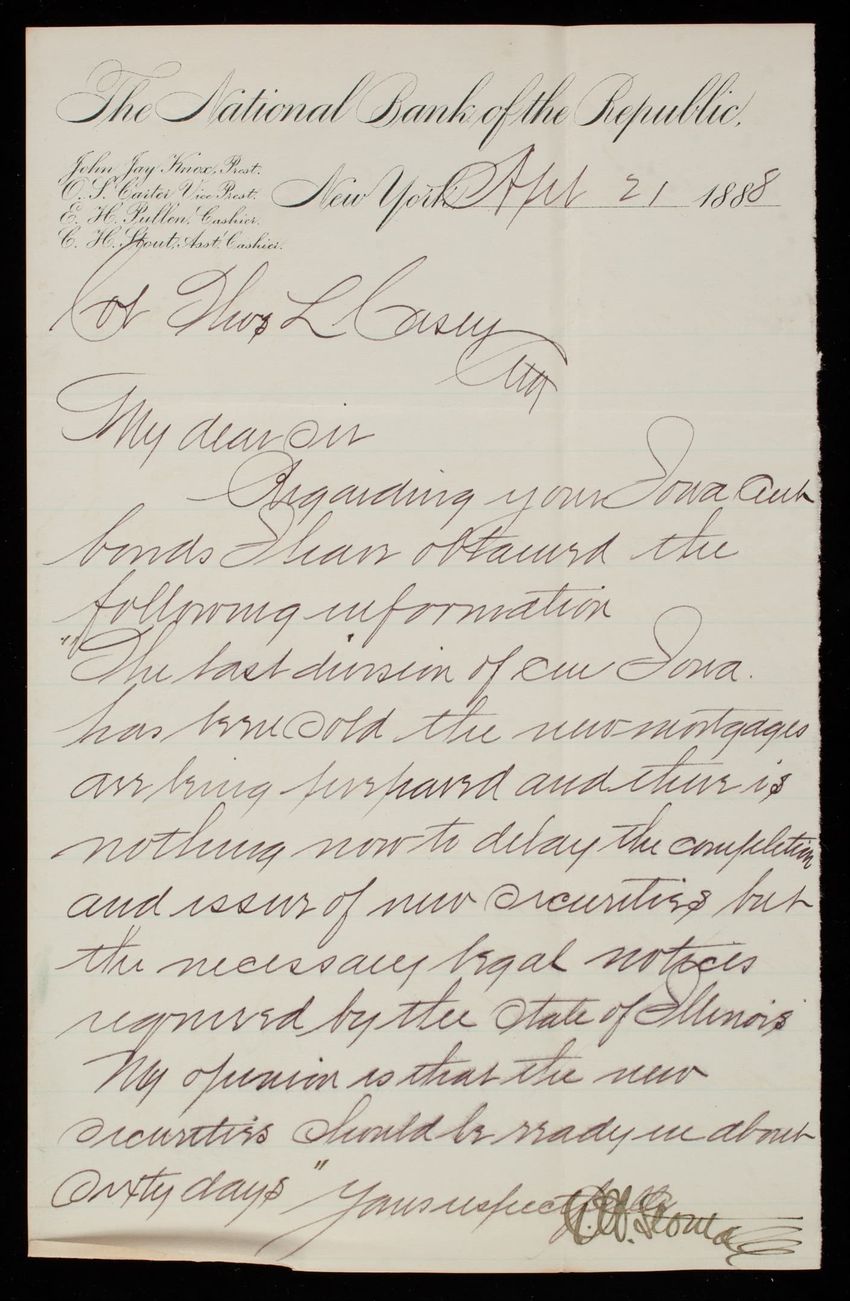 The National Bank of the Republic.
John Jay Knox, Prest.
O. S. Carter Vice Prest.
E. H. Pullen, Cashier.
C. H. Stout, Asst. Cashier.
New York Apl 21 1888
Col Thos L Casey
My dear Sir
Regarding your Iowa Cent
bonds I have obtained the
following information
"The last division of Cen Iowa.
has been sold the new mortgages
are being prepared and there is
nothing now to delay the completion
and issue of new securities but
the necessary legal notices
required by the State of Illinois
My opinion is that the new
securities should be ready in about
Sixty days"
Yours respectfully